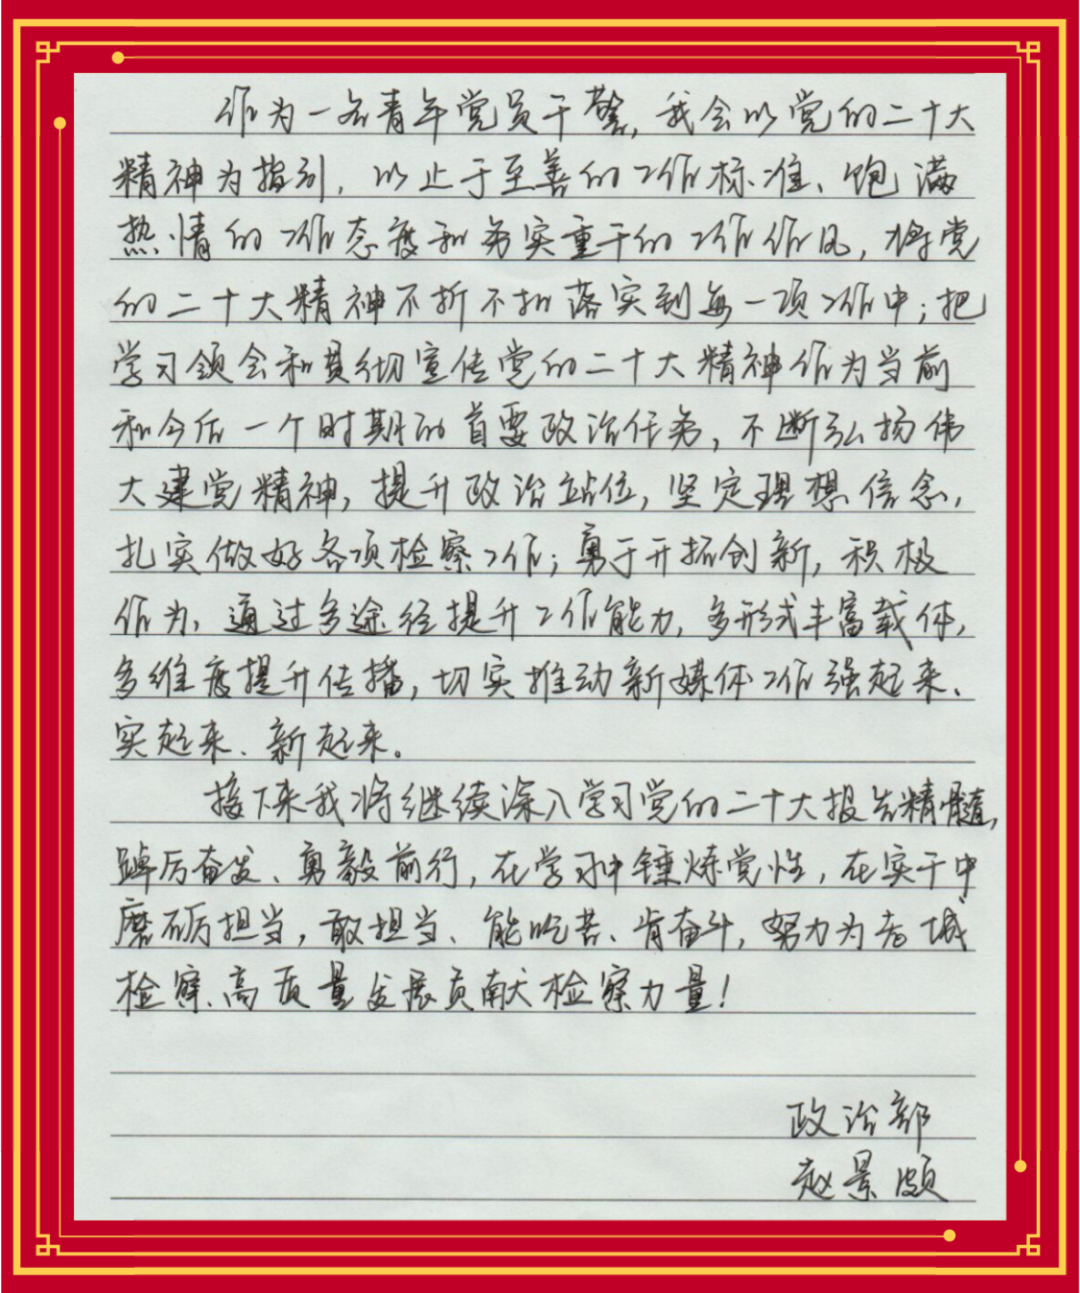 作为一名青年党员干警，我会以党的二十大
精神为指引，以止于至善的工作标准、饱满
热情的工作态度和务实重干的工作作风，将党
的二十大精神不折不扣落实到每一项工作中；把
学习领会和贯彻宣传党的二十大精神作为当前
和今后一个时期的首要政治任务，不断弘扬伟
大建党精神，提升政治站位，坚定理想信念，
扎实做好各项检察工作；勇于开拓创新，积极
作为，通过多途径提升工作能力，多形式丰富载体，
多维度提升传播，切实推动新媒体工作强起来、
实起来、新起来。
接下来我将继续深入学习党的二十大报告精髓，
踔厉奋发、勇毅前行，在学习中锤炼党性，在实干中
磨砺担当，敢担当、能吃苦、肯奋斗，努力为 城
检察、高质量发展贡献检察力量！
政治部
赵景